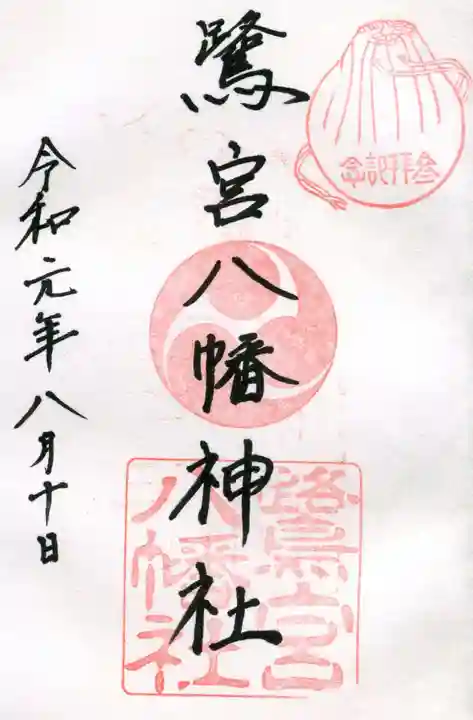 参拝記念
鷺宮八幡神社
鷺宮
八幡社
令和元年八月十日